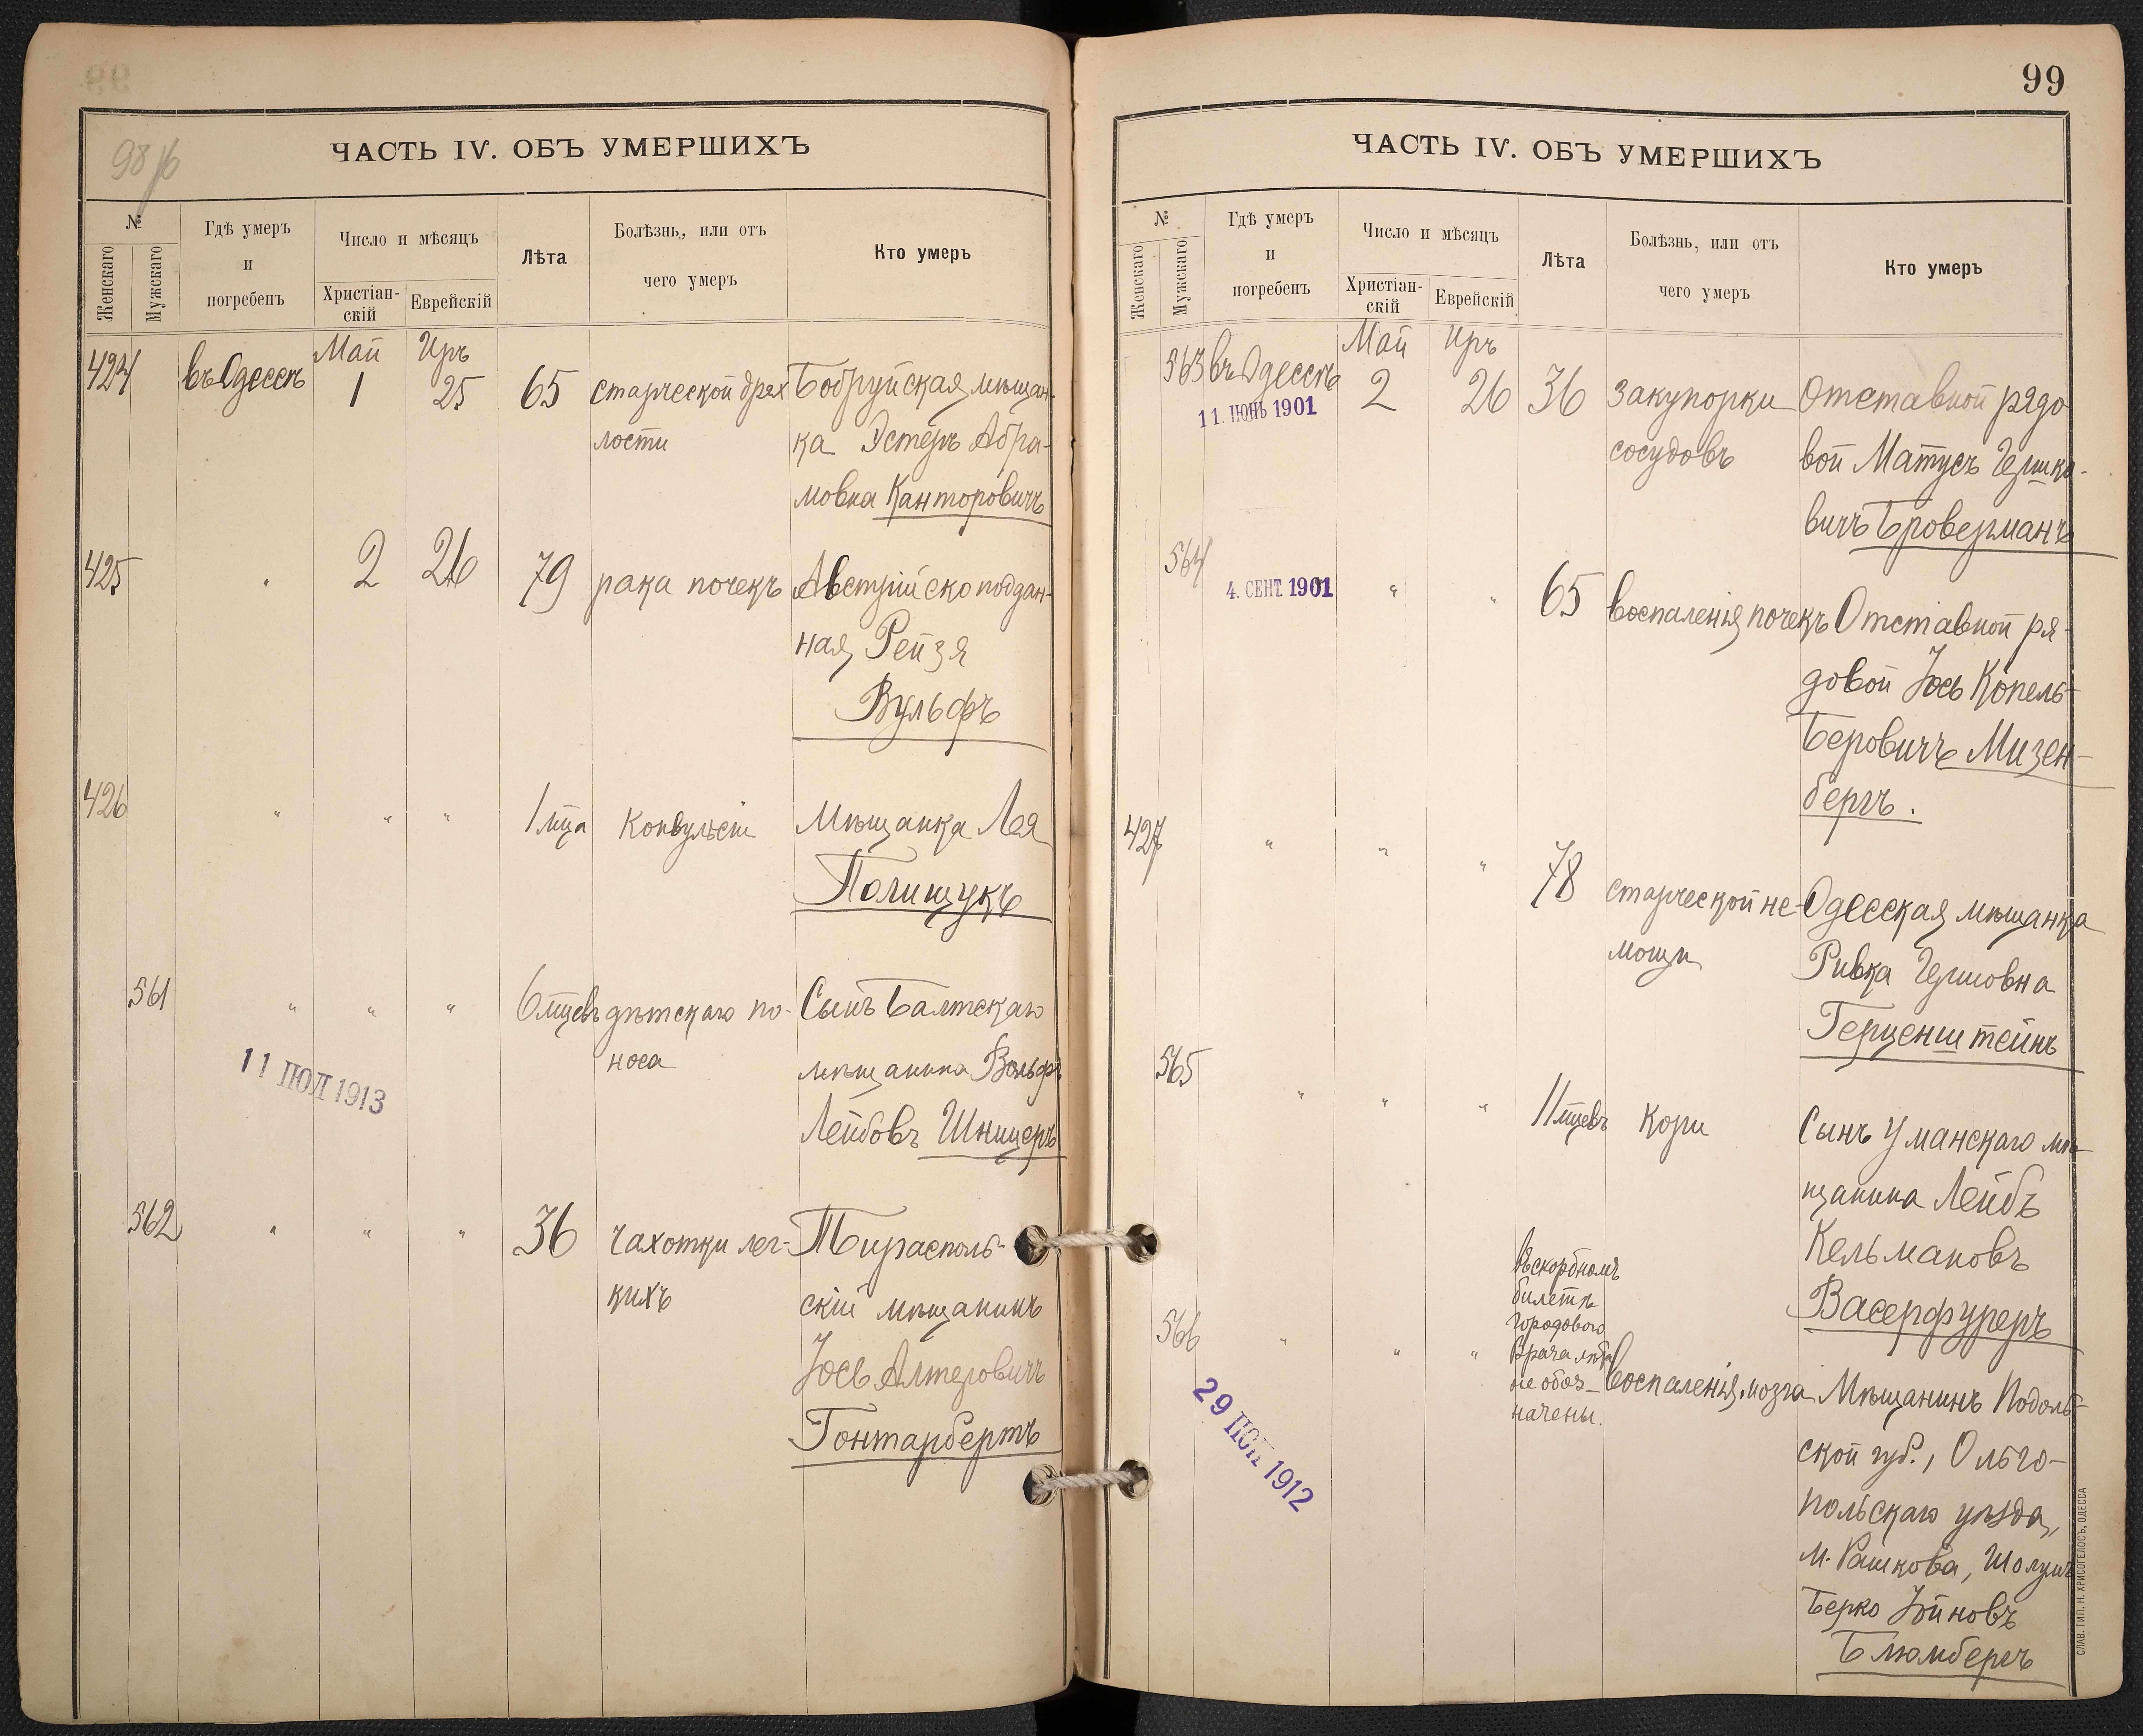 98 об
ЧАСТЬ IV. ОБЪ УМЕРШИХЪ
№
Женскаго
Мужскаго
Гдѣ умеръ
и
погребенъ
Число и мѣсяцъ
Христіан-
скій
Еврейскій
Лѣта
Болѣзнь, или отъ
чего умеръ
Кто умеръ
Май Иръ
424 въ Одессѣ 1 25 65 старческой дрях Бобруйская мѣщан-
лости ка Эстеръ Абра-
мовна Канторовичъ
425 " 2 26 79 рака почекъ Австрійско поддан-
ная Рейзя
Вульфъ
426 " " " 1 мца Конвульсіи Мѣщанка Лея
Полищукъ
561 " " " 6 мцевъ дѣтскаго по- Сынъ Балтскаго
носа мѣщанина Вольфъ
Лейбовъ Шницеръ
11 ІЮЛ 1913
562 " " " 36 чахотки лег- Тирасполь-
кихъ скій мѣщанинъ
Іось Алтеровичъ
Гонтарбертъ
99
ЧАСТЬ IV. ОБЪ УМЕРШИХЪ
№
Женскаго
Мужскаго
Гдѣ умеръ
и
погребенъ
Число и мѣсяцъ
Христіан-
скій
Еврейскій
Лѣта
Болѣзнь, или отъ
чего умеръ
Кто умеръ
Май Иръ
563 въ Одессѣ 2 26 36 закупорки Отставной рядо
11. ІЮНЬ 1901
сосудовъ вой Матусъ Гершко-
вичъ Броверманъ
564 " " 65 воспаленія почекъ Отставной ря-
4. СЕНТ. 1901
довой Іось Копель-
Беровичъ Мизен-
бергъ.
427 " " " 78 старческой не- Одесская мѣщанка
мощи Ривка Гершовна
Герценштейнъ
565 " " " 11 мцевъ Кори Сынъ Уманскаго мѣ-
щанина Лейбъ
Кельмановъ
Васерфуреръ
566 " " " въ скорбномъ
билетѣ
городового
врача лѣта
не обоз-
начены.
воспаленія мозга Мѣщанинъ Подоль-
ской губ., Ольго-
польскаго уѣзда,
м. Рашкова, Шолумъ
Берко Іойновъ
Блюмбергъ
29 1912
СЛАВ. ТИП. Н. ХРИСОГЕЛОСЪ, ОДЕССА